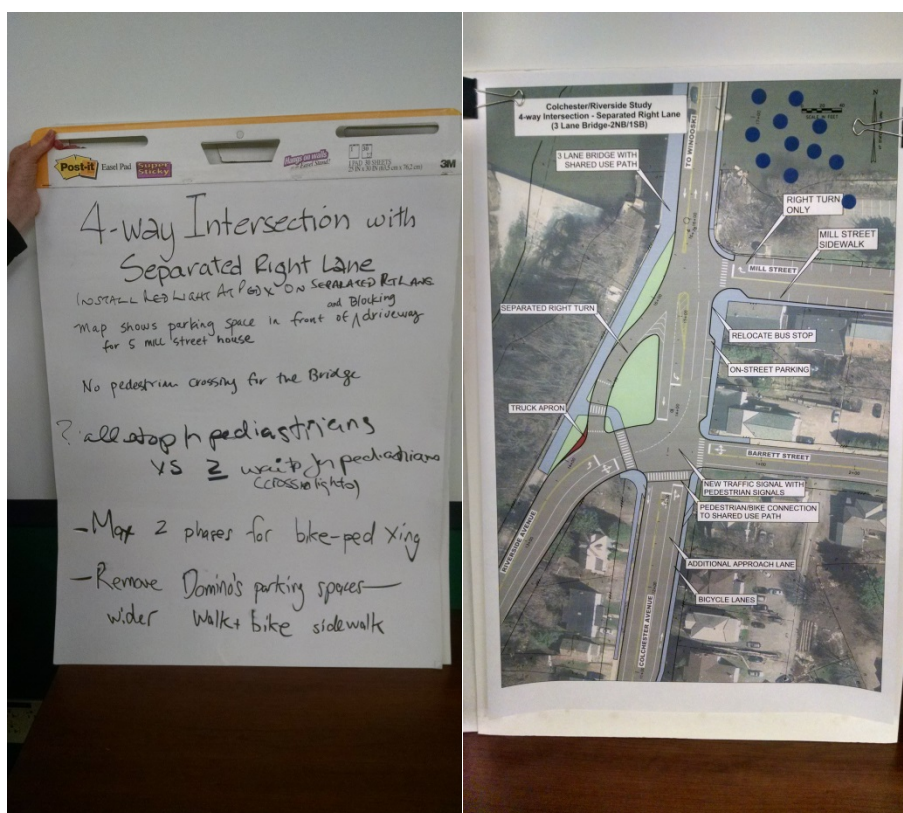 Post-it Easel Pad Super Sticky
Hangs on walls
3M
4-way Intersection with
Separated Right Lane
INSTALL RED LIGHT AT PEDX ON SEPARATED RT LANE
and Blocking
-Map shows parking space in front of ^ driveway
for 5 mill street house
No pedestrian crossing for the Bridge
? all stop for pediastrians
vs 2 waits for pediastrians
(crosslights)
- Max 2 phases for bike-ped Xing
- Remove Domino's parking spaces—
wider walk+bike sidewalk
Colchester/Riverside Study
4-way Intersection - Separated Right Lane
(3 Lane Bridge-2NB/1SB)
TO WINOOSKI
3 LANE BRIDGE WITH
SHARED USE PATH
RIGHT TURN
ONLY
MILL STREET
SIDEWALK
MILL STREET
SEPARATED RIGHT TURN
RELOCATE BUS STOP
ON-STREET PARKING
TRUCK APRON
BARRETT STREET
NEW TRAFFIC SIGNAL WITH
PEDESTRIAN SIGNALS
PEDESTRIAN/BIKE CONNECTION
TO SHARED USE PATH
RIVERSIDE AVENUE
ADDITIONAL APPROACH LANE
BICYCLE LANES
COLCHESTER AVENUE